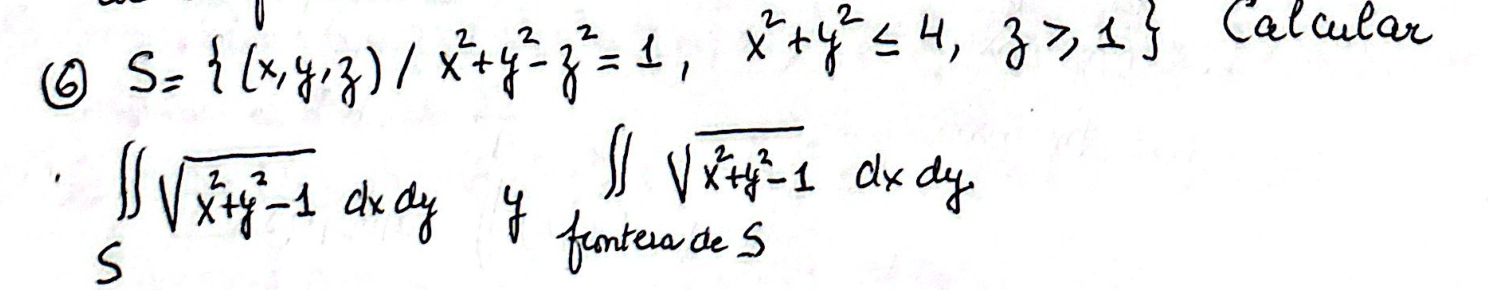 ⑥ S = { (x,y,z) / x²+y²-z² = 1, x²+y² ≤ 4, z ≥ 1 } Calcular
∬_S √(x²+y²-1) dx dy y ∬_{frontera de S} √(x²+y²-1) dx dy.